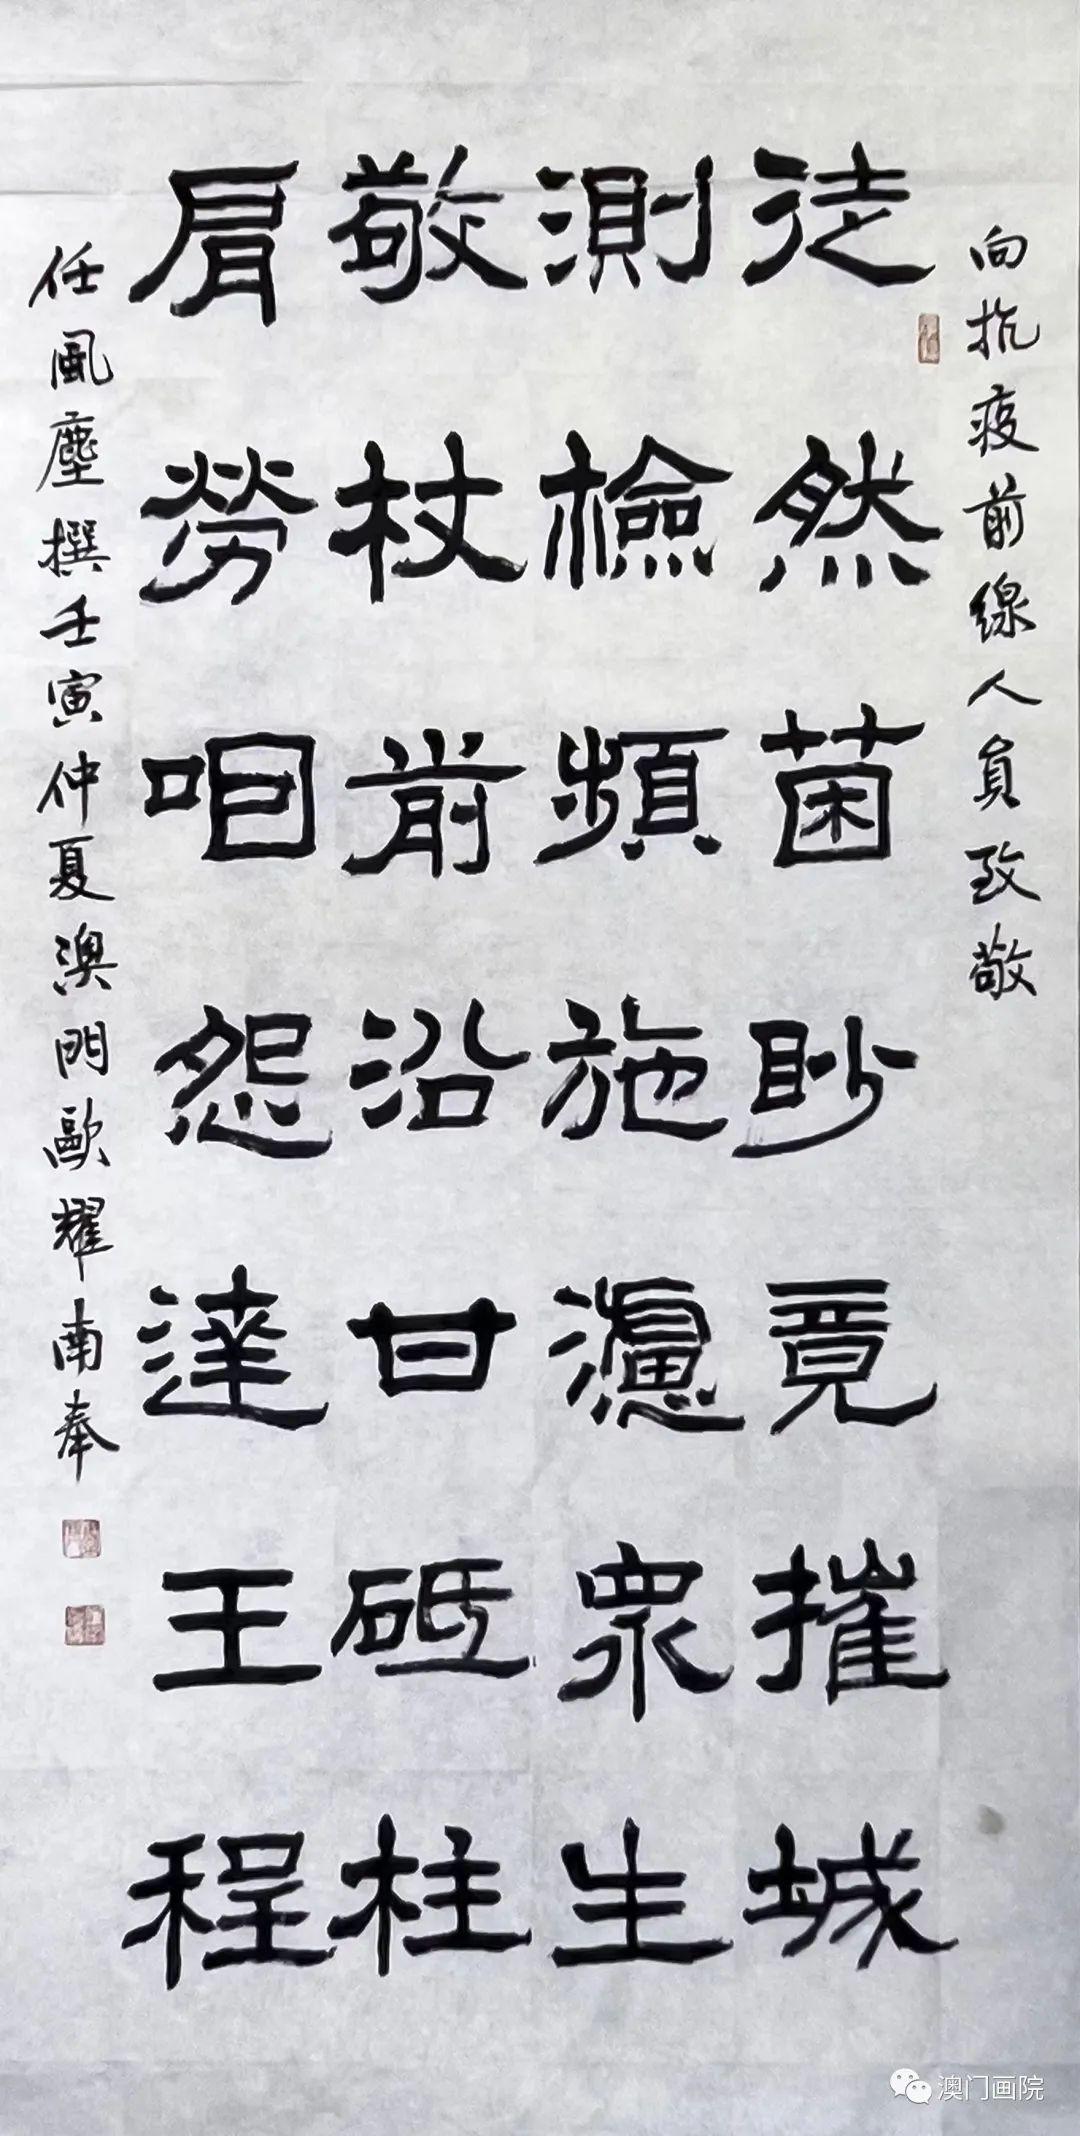 向抗疫前線人員致敬
徒然菌眇竟摧城
測檢頻施濾眾生
敬杖前沿甘砥柱
肩勞咽怨達王程
任風塵撰壬寅仲夏澳門歐耀南奉
澳门画院